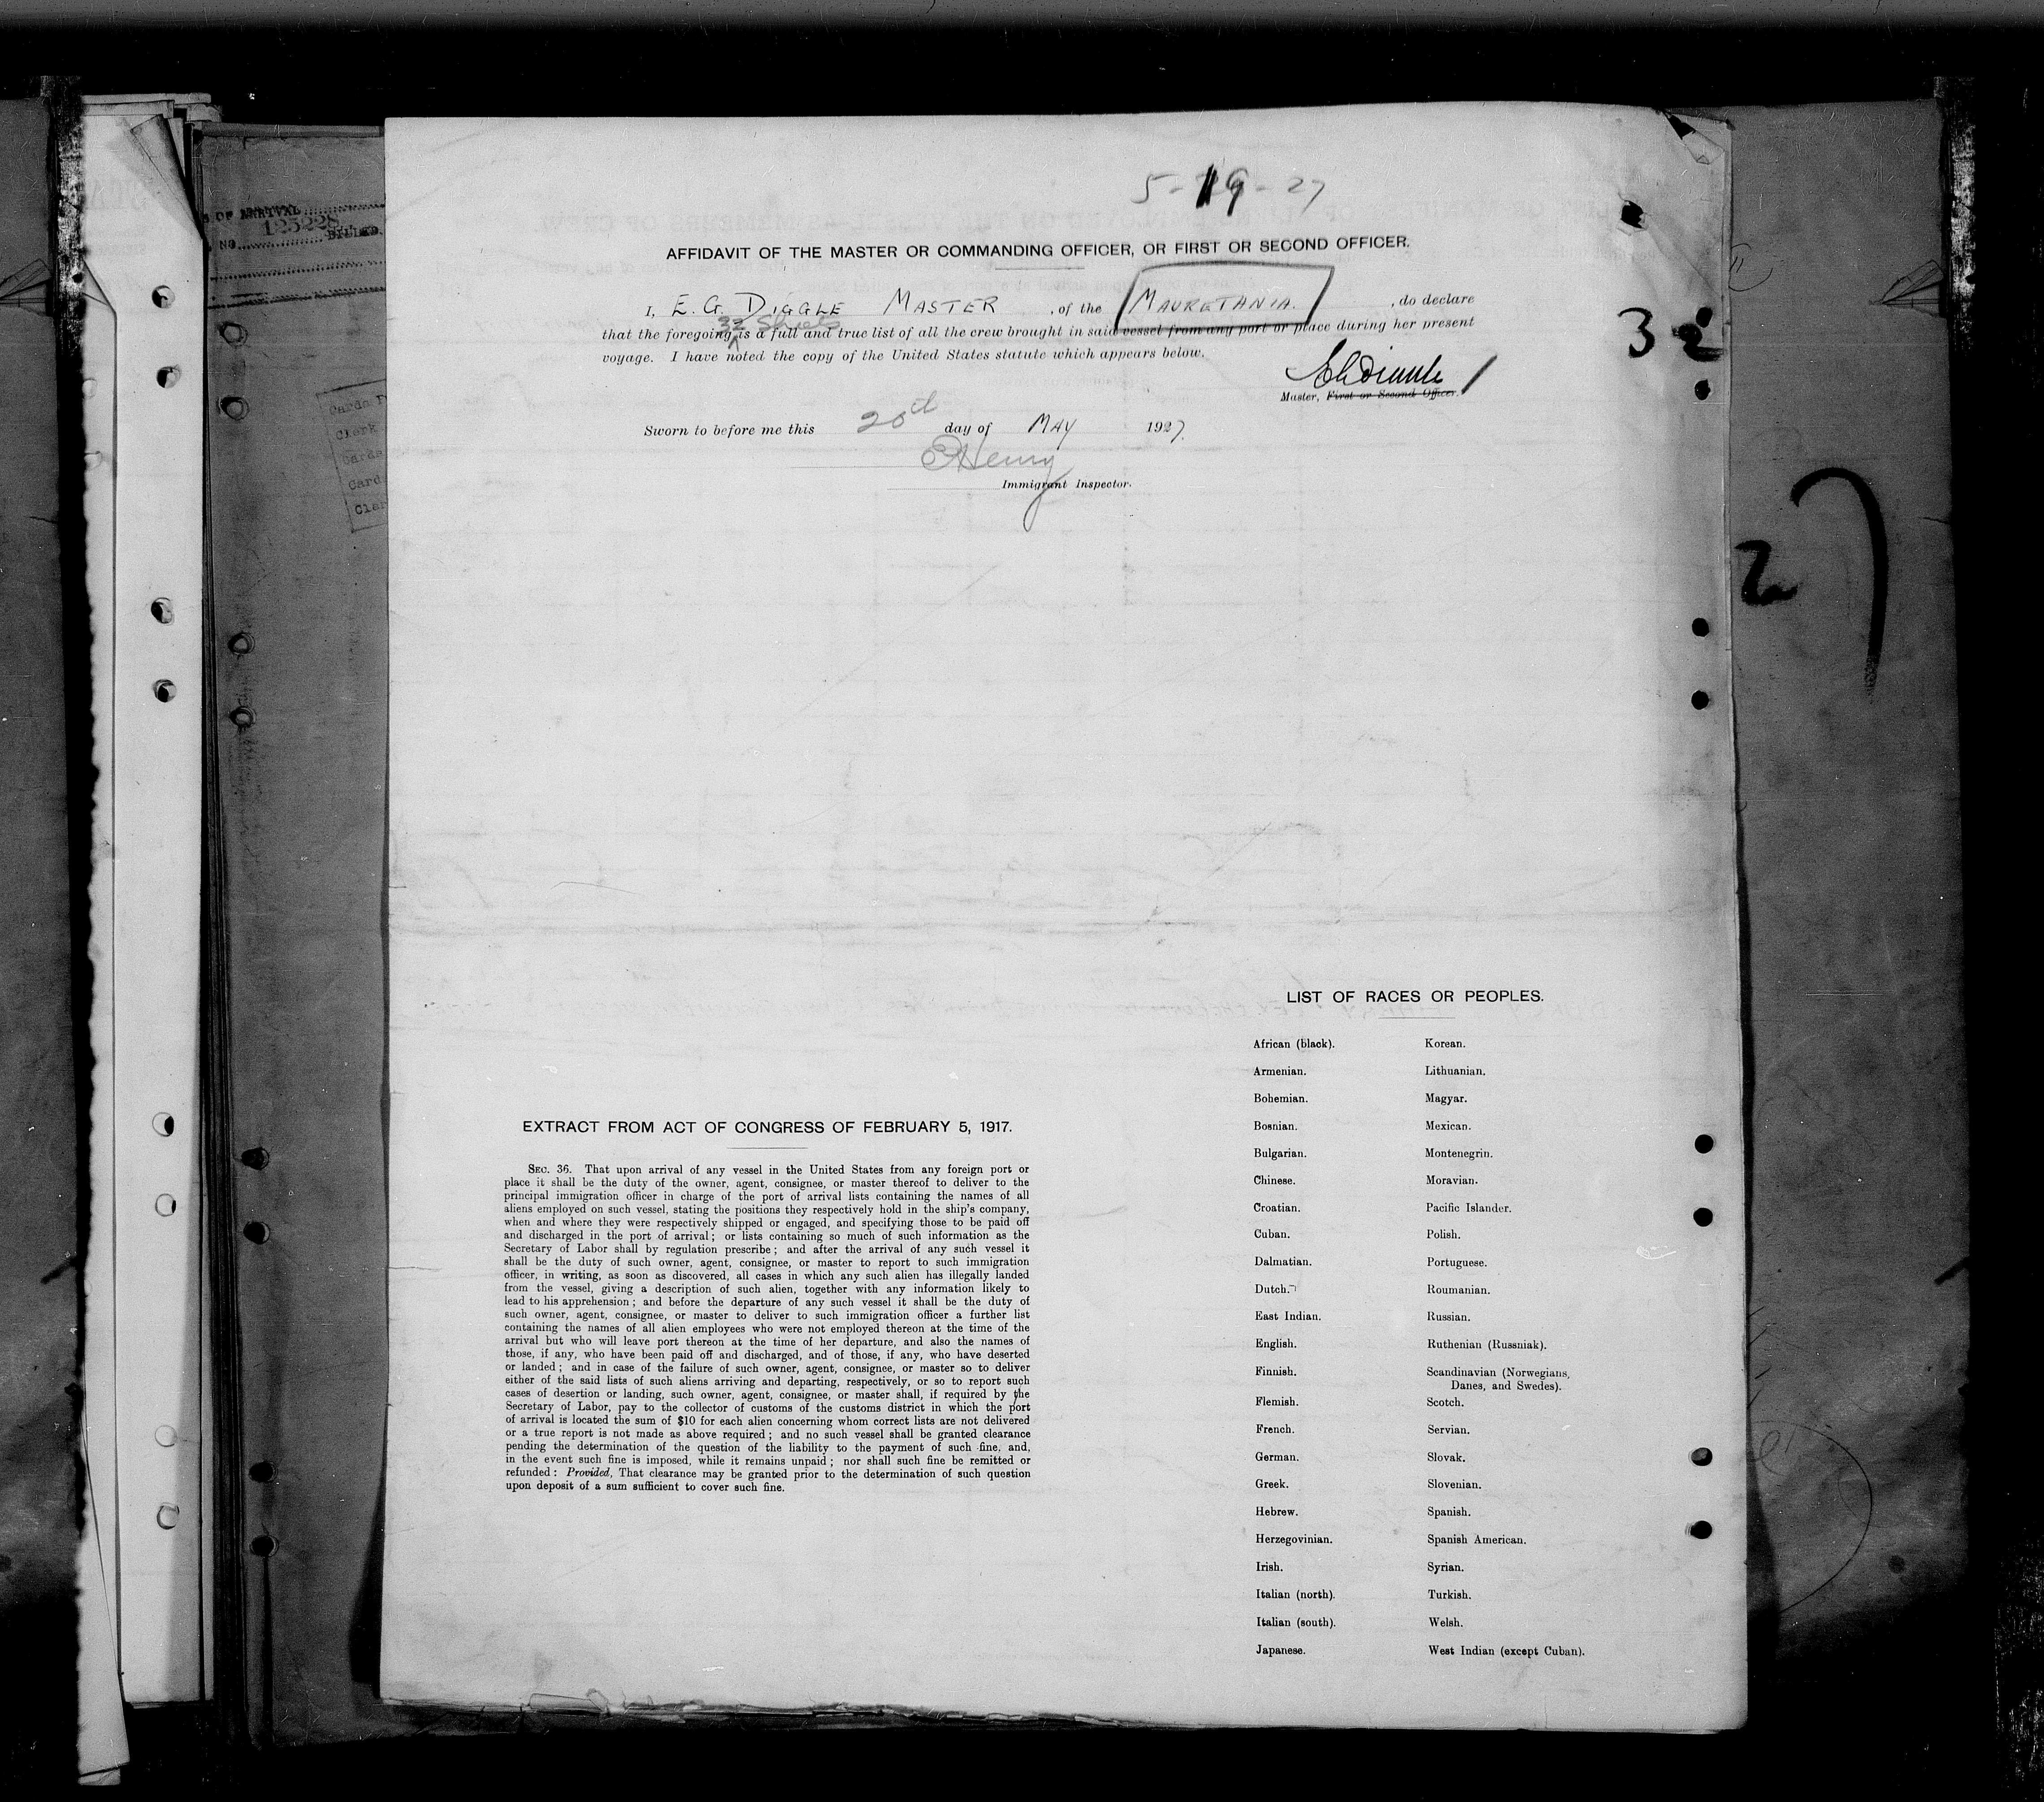 5-19-27
AFFIDAVIT OF THE MASTER OR COMMANDING OFFICER, OR FIRST OR SECOND OFFICER.
I, E. G. DIGGLE MASTER, of the MAURETANIA., do declare
33 Sheets
that the foregoing is a full and true list of all the crew brought in said vessel from any port or place during her present
voyage. I have noted the copy of the United States statute which appears below.
Master, First or Second Officer.
Sworn to before me this 20th day of MAY 1927.
Henry
Immigrant Inspector.
OF ARRIVAL
NO. 125228 BILLED.
Cards
Clerk
Cards
Card
32
27
LIST OF RACES OR PEOPLES.
African (black). Korean.
Armenian. Lithuanian.
Bohemian. Magyar.
Bosnian. Mexican.
Bulgarian. Montenegrin.
Chinese. Moravian.
Croatian. Pacific Islander.
Cuban. Polish.
Dalmatian. Portuguese.
Dutch. Roumanian.
East Indian. Russian.
English. Ruthenian (Russniak).
Finnish. Scandinavian (Norwegians,
Danes, and Swedes).
Flemish. Scotch.
French. Servian.
German. Slovak.
Greek. Slovenian.
Hebrew. Spanish.
Herzegovinian. Spanish American.
Irish. Syrian.
Italian (north). Turkish.
Italian (south). Welsh.
Japanese. West Indian (except Cuban).
EXTRACT FROM ACT OF CONGRESS OF FEBRUARY 5, 1917.
SEC. 36. That upon arrival of any vessel in the United States from any foreign port or
place it shall be the duty of the owner, agent, consignee, or master thereof to deliver to the
principal immigration officer in charge of the port of arrival lists containing the names of all
aliens employed on such vessel, stating the positions they respectively hold in the ship's company,
when and where they were respectively shipped or engaged, and specifying those to be paid off
and discharged in the port of arrival; or lists containing so much of such information as the
Secretary of Labor shall by regulation prescribe; and after the arrival of any such vessel it
shall be the duty of such owner, agent, consignee, or master to report to such immigration
officer, in writing, as soon as discovered, all cases in which any such alien has illegally landed
from the vessel, giving a description of such alien, together with any information likely to
lead to his apprehension; and before the departure of any such vessel it shall be the duty of
such owner, agent, consignee, or master to deliver to such immigration officer a further list
containing the names of all alien employees who were not employed thereon at the time of the
arrival but who will leave port thereon at the time of her departure, and also the names of
those, if any, who have been paid off and discharged, and of those, if any, who have deserted
or landed; and in case of the failure of such owner, agent, consignee, or master so to deliver
either of the said lists of such aliens arriving and departing, respectively, or so to report such
cases of desertion or landing, such owner, agent, consignee, or master shall, if required by the
Secretary of Labor, pay to the collector of customs of the customs district in which the port
of arrival is located the sum of $10 for each alien concerning whom correct lists are not delivered
or a true report is not made as above required; and no such vessel shall be granted clearance
pending the determination of the question of the liability to the payment of such fine, and,
in the event such fine is imposed, while it remains unpaid; nor shall such fine be remitted or
refunded: Provided, That clearance may be granted prior to the determination of such question
upon deposit of a sum sufficient to cover such fine.